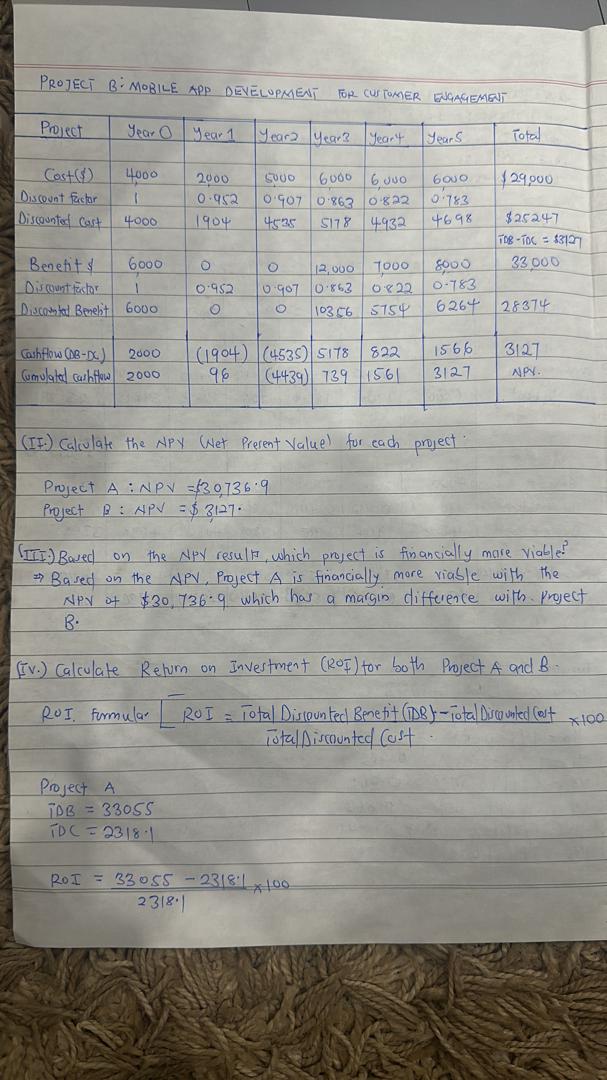 PROJECT B: MOBILE APP DEVELOPMENT FOR CUSTOMER ENGAGEMENT
Project Year 0 Year 1 Year 2 Year 3 Year 4 Year 5 Total
Cost($) 4000 2,000 5000 6000 6,000 6000 $29,000
Discount factor 1 0.952 0.907 0.863 0.822 0.783
Discounted Cost 4000 1904 4535 5178 4932 4698 $25247
TDB-TDC = $3127
Benefit $ 6000 0 0 12,000 7000 8000 33,000
Discount factor 1 0.952 0.907 0.863 0.822 0.783
Discounted Benefit 6000 0 0 10356 5754 6264 28374
Cashflow (DB-DC) 2000 (1904) (4535) 5178 822 1566 3127
Cumulated cashflow 2000 96 (4439) 739 1561 3127 NPV.
(II.) Calculate the NPV (Net Present Value) for each project.
Project A : NPV = $30,736.9
Project B : NPV = $3,127.
(III.) Based on the NPV result, which project is financially more viable?
⇒ Based on the NPV, Project A is financially more viable with the
NPV of $30,736.9 which has a margin difference with project
B.
(IV.) Calculate Return on Investment (ROI) for both Project A and B.
ROI. Formular [ ROI = Total Discounted Benefit (TDB) - Total Discounted Cost x100
Total Discounted Cost.
Project A
TDB = 33055
TDC = 2318.1
ROI = 33055 - 2318.1 x100
2318.1